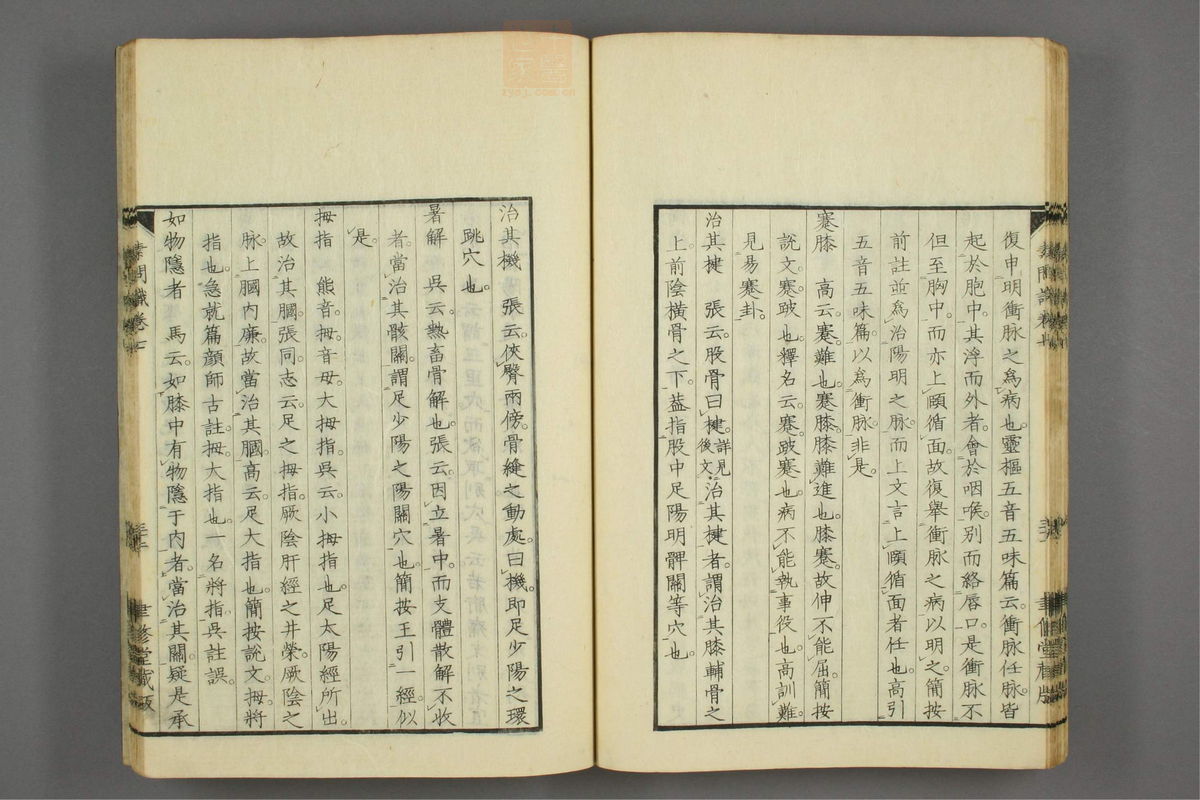 復申明衝脉之爲病也。靈樞五音五味篇云。衝脉任脉。皆
起於胞中。其浮而外者。會於咽喉。別而絡唇口。是衝脉不
但至胸中。而亦上頤循面。故復舉衝脉之病以明之。簡按
前註並爲治陽明之脉。而上文言上頤循面者任也。高引
五音五味篇。以爲衝脉。非是。
蹇膝　高云。蹇。難也。蹇膝。膝難進也。膝蹇。故伸不能屈。簡按
說文。蹇。跛也。釋名云。蹇。跛蹇也。病不能執事役也。高訓難。
見易蹇卦。
治其楗　張云。股骨曰楗。詳見後文。治其楗者。謂治其膝輔骨之
上。前陰橫骨之下。蓋指股中足陽明髀關等穴也。
治其機　張云。俠臀兩傍。骨縫之動處。曰機。即足少陽之環
跳穴也。
暑解　吳云。熱畜骨解也。張云。因立暑中。而支體散解不收
者。當治其骸關。謂足少陽之陽關穴也。簡按王引一經。似
是。
拇指　熊音。拇。音母。大拇指。吳云。小拇指也。足太陽經所出。
故治其膕。張同。志云。足之拇指。厥陰肝經之井滎。厥陰之
脉。上膕內廉。故當治其膕。高云。足大指也。簡按說文。拇。將
指也。急就篇顏師古註。拇。大指也。一名將指。吳註誤。
如物隱者　馬云。如膝中有物隱于內者。當治其關。疑是承
素問識卷七